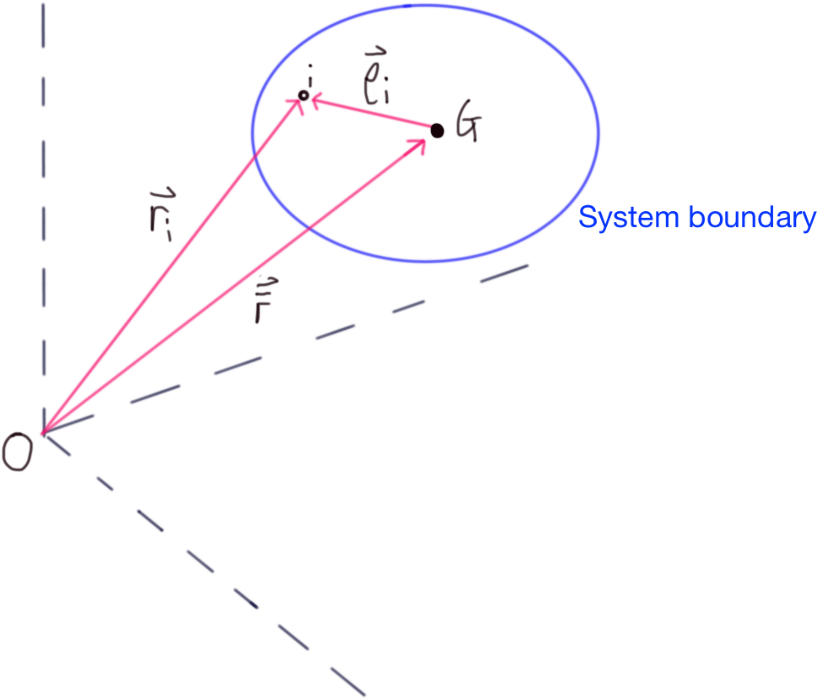 i
ρ⃗i
G
r⃗i
System boundary
r̿⃗
O